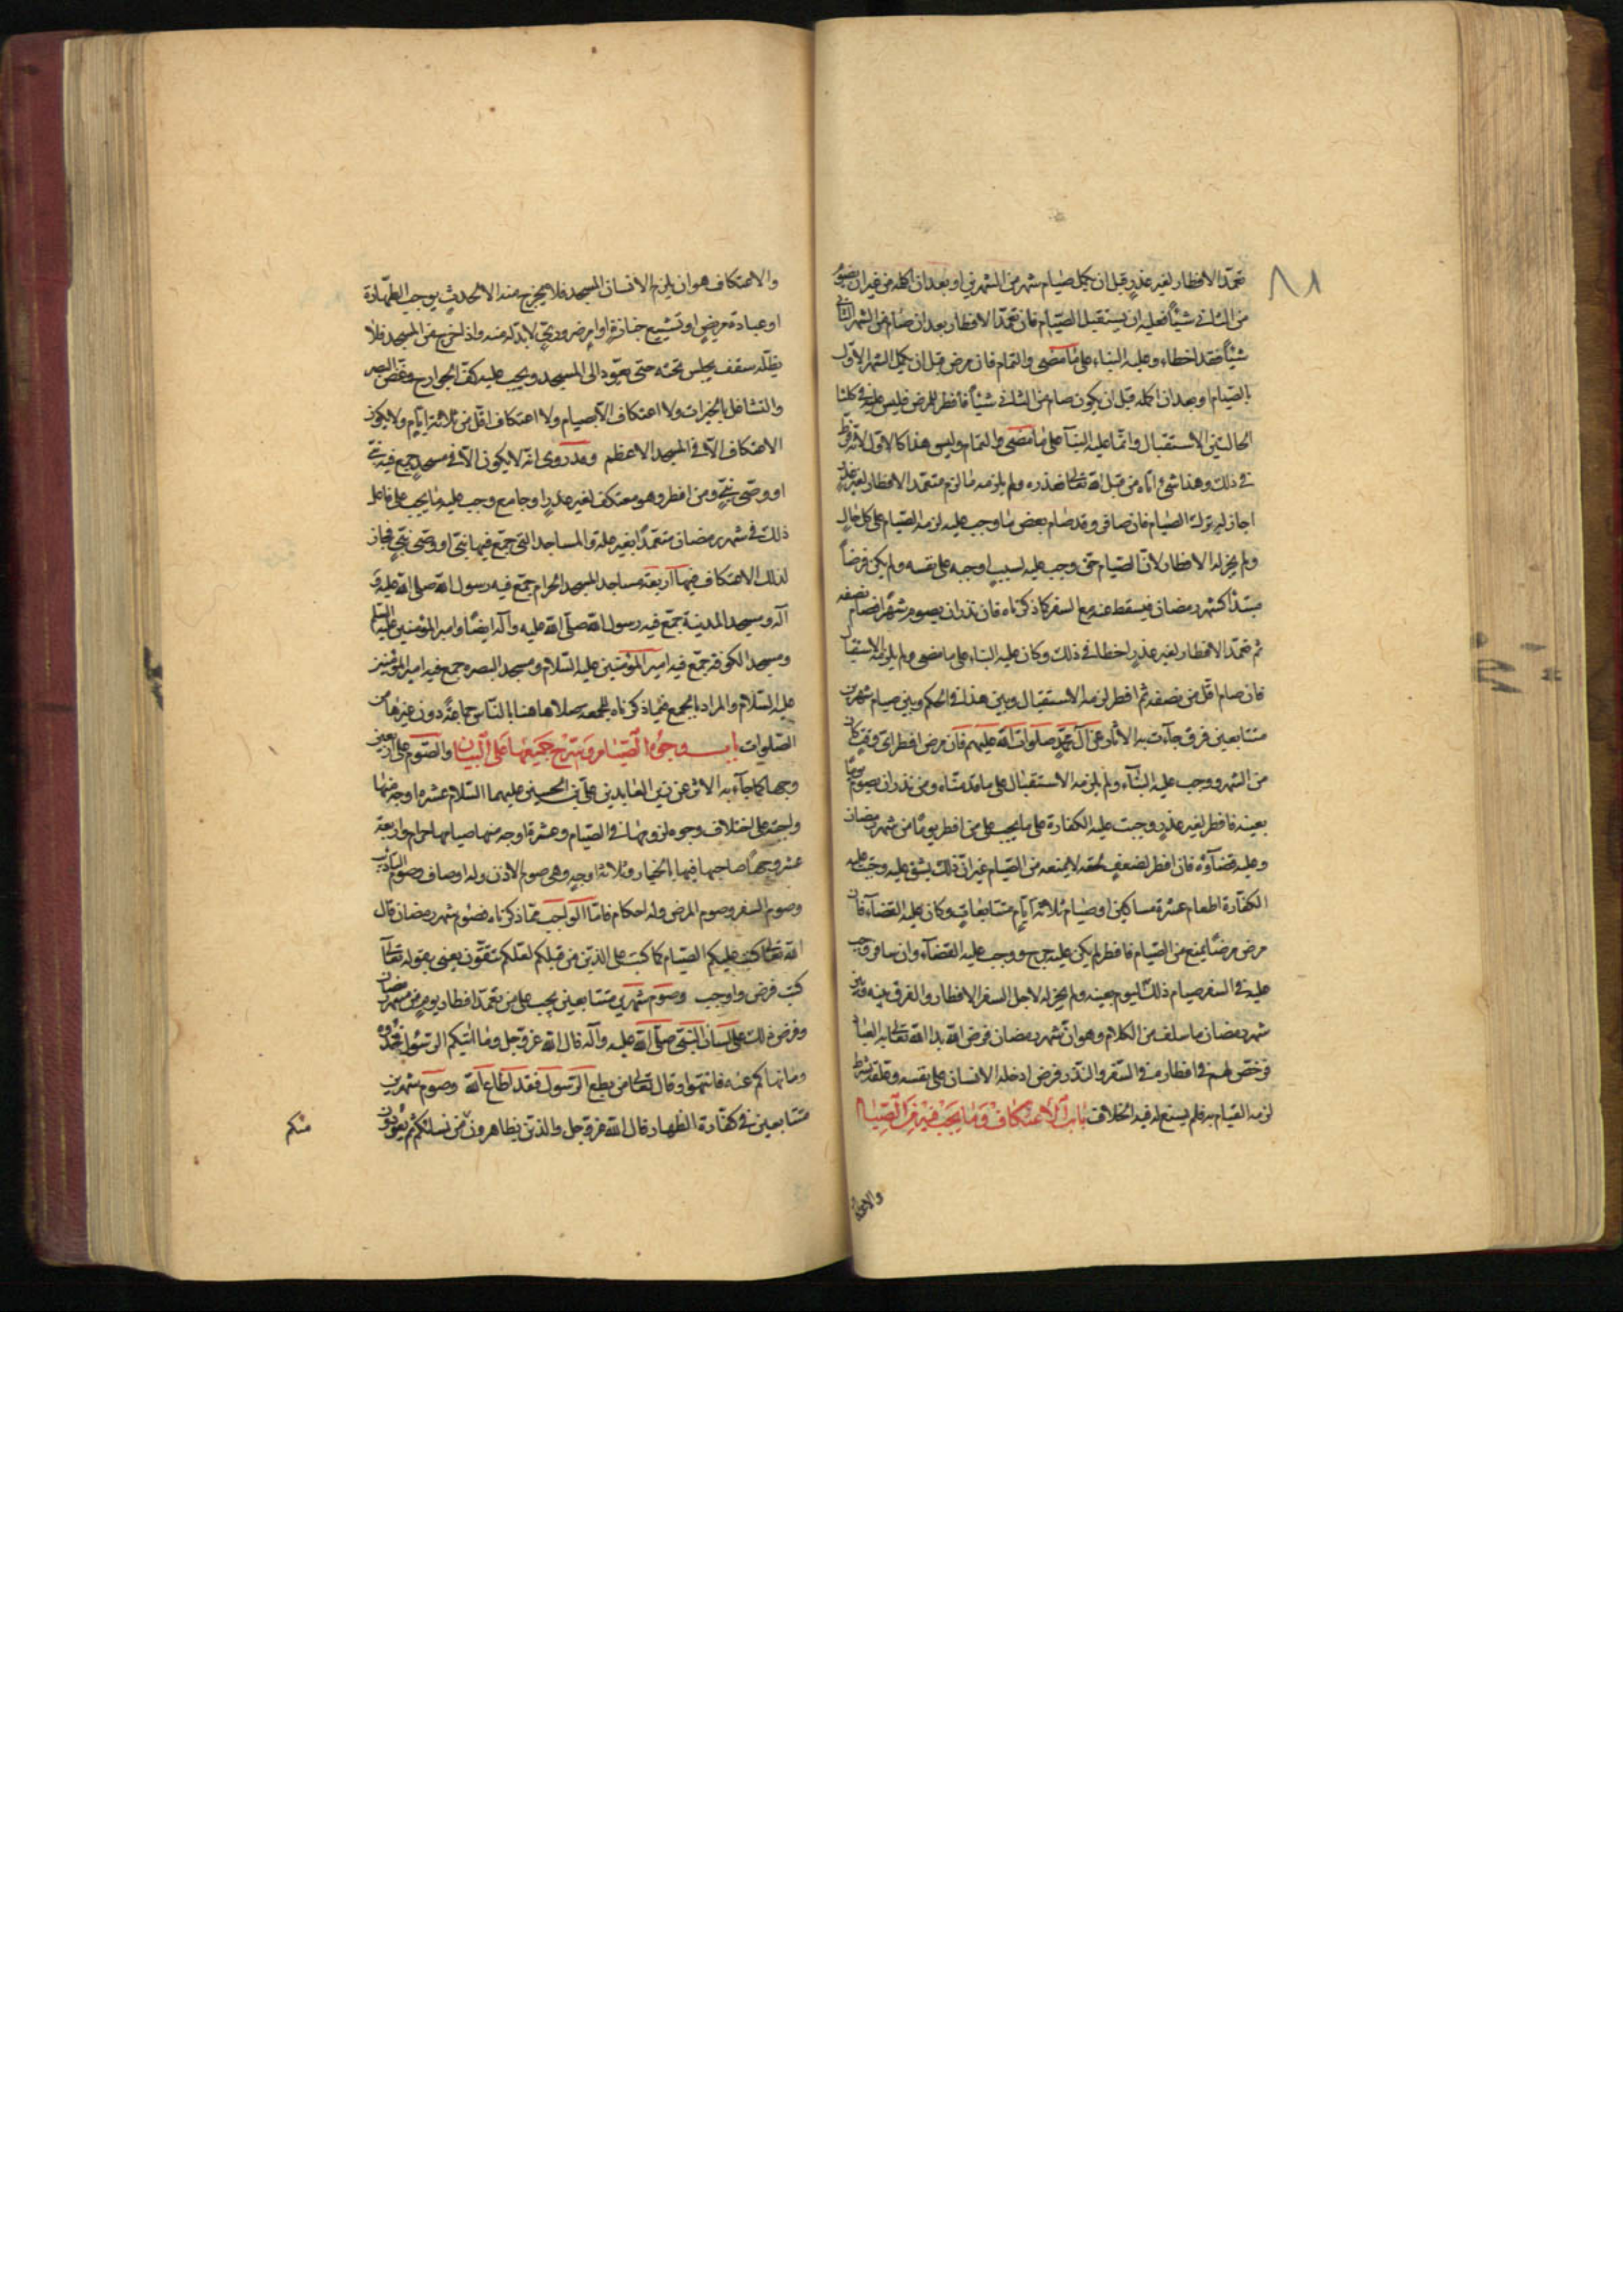 تعمّد الافطار لغير عذر قبل ان يكمل صيام شهر من الشهرين او بعد ان اكمله من غير ان يصوم
من الثاني شيئاً فعليه ان يستقبل الصيام فان تعمّد الافطار بعد ان صام من الشهر الثاني
شيئاً فقد اخطاء وعليه البناء على ما مضى والتمام فان مرض قبل ان يكمل الشهر الاول
بالصيام او بعد ان اكمله قبل ان يكون صام من الثاني شيئاً فافطر للمرض فليس عليه في كلتا
الحالتين الاستقبال وانما عليه البناء على ما مضى والتمام وليس هذا كالاول لانه فرط
في ذلك وهذا شئ اتاه من قبل الله تعالى فعذره ولم يلزمه ما الزم متعمّد الافطار لغير عذر
اجاز له ترك الصيام فان سافر وقد صام بعض ما وجب عليه لزمه الصيام على كل حال
ولم يجز له الافطار لانّ الصيام حق وجب عليه لسبب اوجبه على نفسه ولم يكن فرضاً
مبتدأ كشهر رمضان فيسقط عنه مع السفر كما ذكرناه فان نذر ان يصوم شهراً فصام نصفه
ثم تعمّد الافطار لغير عذر اخطا في ذلك وكان عليه البناء على ما مضى ولم يلزمه الاستقبال
فان صام اقل من نصفه ثم افطر لزمه الاستقبال وبين هذا في الحكم وبين صيام شهرين
متتابعين فرق جآءت به الآثار عن آل محمّد صلوات الله عليهم فان مرض افطر اي وقت كان
من الشهر ووجب عليه البناء ولم يلزمه الاستقبال على ما قدمناه ومن نذر ان يصوم يوماً
بعينه فافطر لغير عذر وجبت عليه الكفارة على ما يجب على من افطر يوماً من شهر رمضان
وعليه قضآؤه فان افطر لضعف لحقه لا يمنعه من الصيام غير انّ ذلك يشق عليه وجبت عليه
الكفّارة اطعام عشرة مساكين او صيام ثلاثة ايّام متتابعات وكان عليه القضآء فان
مرض مرضاً يمنع من الصيام فافطر لم يكن عليه حرج ووجب عليه القضآء وان سافر وجب
عليه في السفر صيام ذلك اليوم بعينه ولم يجز له لاجل السفر الافطار والفرق بينه وبين
شهر رمضان ما سلف من الكلام وهو انّ شهر رمضان فرض الله بدا الله تعالى به العباد
فرخص لهم في افطاره في السفر والنذر فرض ادخله الانسان على نفسه وعلقه بشرط
لزمه القيام به فلم يسع له فيه الخلاف باب الاعتكاف وما يجب فيه من الصيام
والاعتكاف
والاعتكاف هو ان يلزم الانسان المسجد فلا يخرج منه الا لحدث يوجب الطهارة
او عيادة مريض او تشييع جنازة او امر ضروري لا بد له منه واذا خرج من المسجد فلا
يظله سقف يجلس تحته حتى يعود الى المسجد ويجب عليه كف الجوارح وغض البصر
والتشاغل بالخيرات ولا اعتكاف الا بصيام ولا اعتكاف اقل من ثلاثة ايام ولا يكون
الاعتكاف الا في المسجد الاعظم وقد روى انه لا يكون الا في مسجد جمع فيه نبي
او وصي نبي ومن افطر وهو معتكف لغير عذر او جامع وجب عليه ما يجب على فاعل
ذلك في شهر رمضان متعمّداً بغير علة والمساجد التي جمع فيها نبي او وصي نبي فجاز
لذلك الاعتكاف فيها اربعة مساجد المسجد الحرام جمّع فيه رسول الله صلى الله عليه و
آله ومسجد المدينة جمّع فيه رسول الله صلى الله عليه وآله ايضاً وامير المؤمنين عليه السلم
ومسجد الكوفة جمّع فيه امير المؤمنين عليه السلام ومسجد البصره جمع فيه امير المؤمنين
عليه السلام والمراد بالجمع فيما ذكرناه للجمعه صلاها هنا بالناس جماعة دون غيرها من
الصلوات باب وجوه الصيام وشرح جميعها على البيان والصوم على اربعين
وجهاً كما جآء به الاثر عن زين العابدين علي بن الحسين عليهما السلام عشرة اوجه منها
واجبة على اختلاف وجوه لزومها في الصيام وعشرة اوجه منها صيامها حرام واربعة
عشر وجهاً صاحبها فيها بالخيار وثلاثة اوجه وهي صوم الاذن وله اوصاف وصوم التأديب
وصوم السفر وصوم المرض وله احكام فامّا الواجب ممّا ذكرناه فصوم شهر رمضان قال
الله تعالى كتب عليكم الصيام كما كتب على الذين من قبلكم لعلكم تتقون يعني بقوله تعالى
كتب فرض واوجب وصوم شهرين متتابعين يجب على من تعمّد افطار يوم من شهر رمضان
وفرض ذلك على لسان النبي صلى الله عليه وآله قال الله عز وجل وما آتيكم الرسول فخذوه
وما نهاكم عنه فانتهوا وقال تعالى من يطع الرسول فقد اطاع الله وصوم شهرين
متتابعين في كفارة الظهار قال الله عز وجل والذين يظاهرون من نسائكم ثم يعودون
منكم